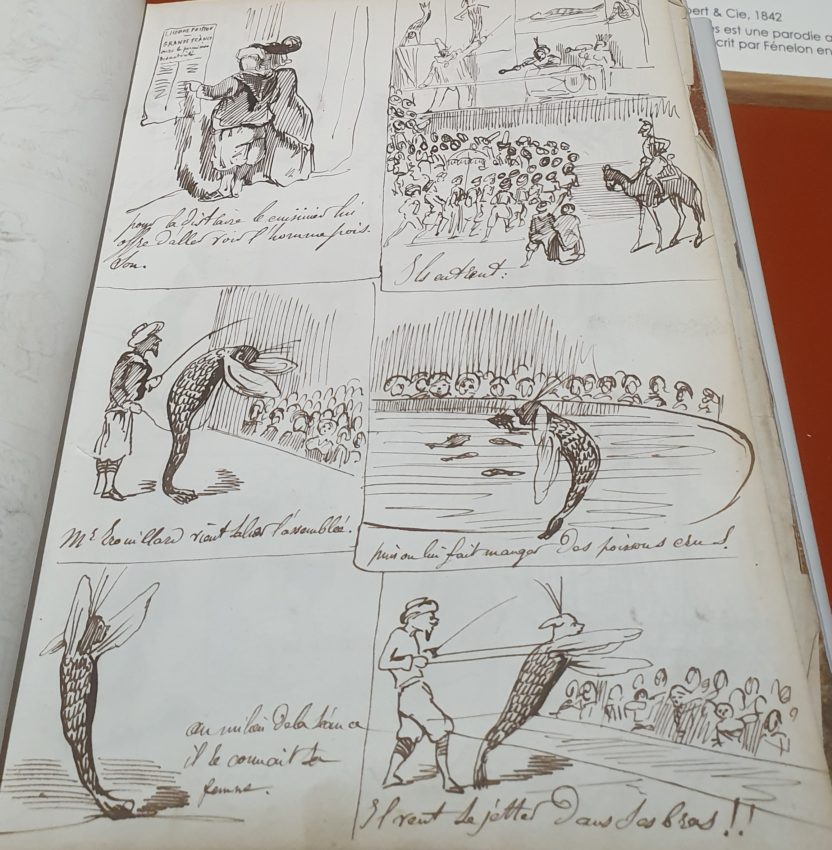 L'HOMME POISSON
GRANDE SÉANCE
pour la distraire le cuisinier lui
offre d'aller voir l'homme pois
son.
Ils entrent:
Mr Trouillard vient saluer l'assemblée.
puis on lui fait manger des poissons crus.
au milieu de la séance
il reconnait sa
femme.
Il veut se jetter dans ses bras!!
bert & Cie, 1842
es est une parodie
crit par Fénelon en